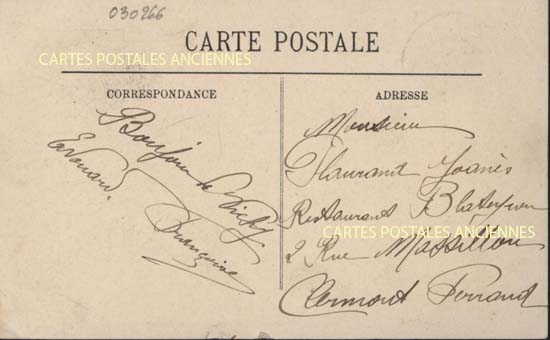 030266
CARTE POSTALE
CARTES POSTALES ANCIENNES
CORRESPONDANCE
Bonjour de Vichy
Françoise
Edouard.
ADRESSE
Monsieur
Flaurand Joanès
Restaurant Blateyron
CARTES POSTALES ANCIENNES
2 Rue Massillon
Clermont Ferrand